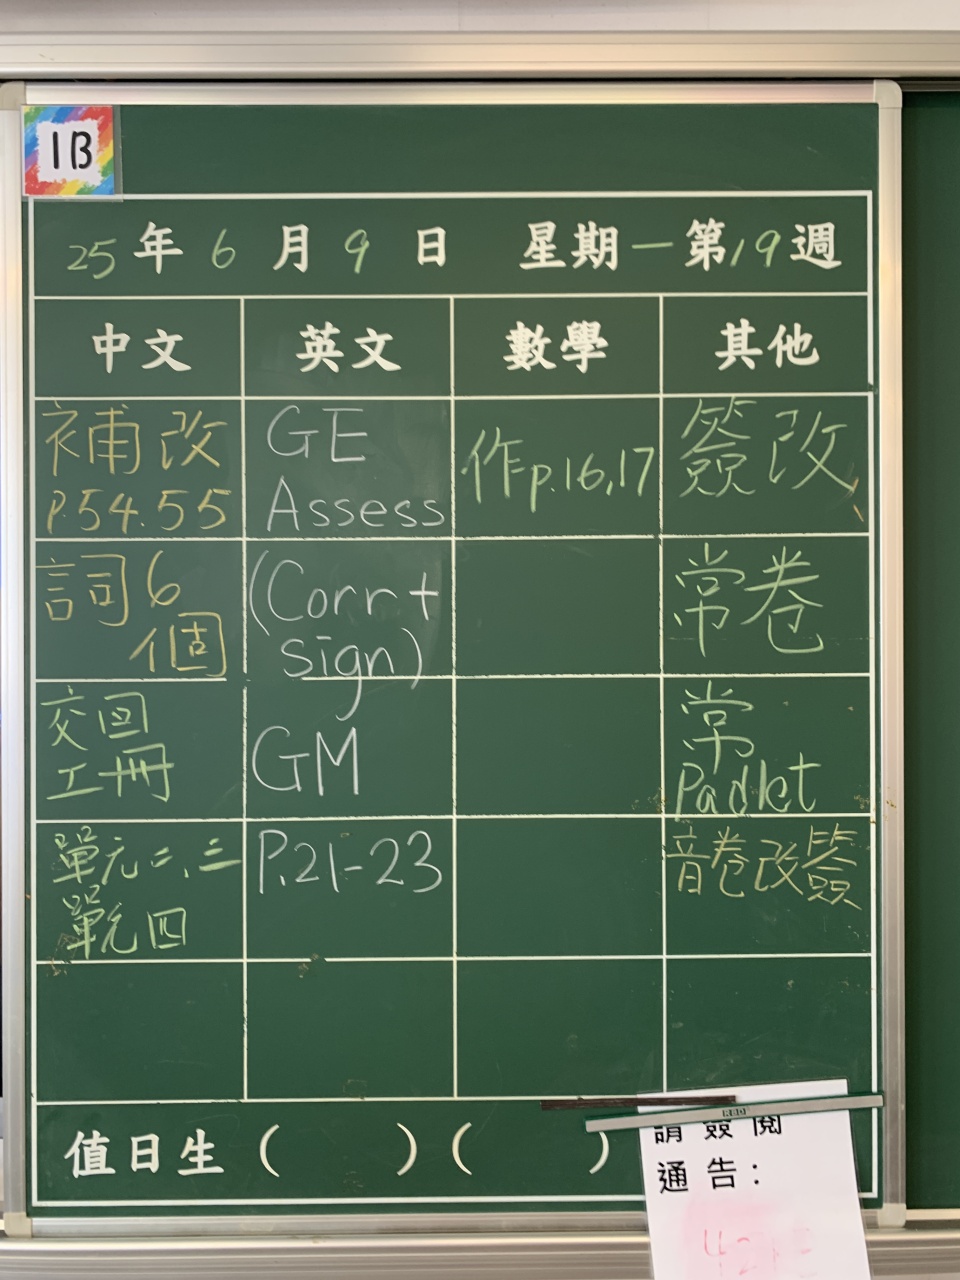 1B
25年6月9日 星期一第19週
中文 英文 數學 其他
補改
P.54.55
詞6
個
交圖
工冊
單元二、三
單元四
GE
Assess
(Corr+
sign)
GM
P.21-23
作p.16,17
簽改
常卷
常
Padlet
音卷改簽
值日生 ( ) ( )
RBD
請簽閱
通告：